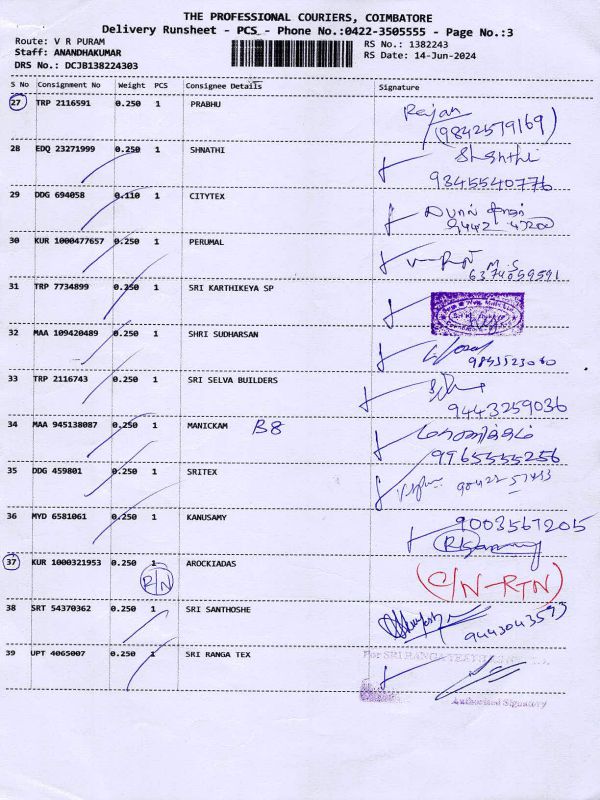 THE PROFESSIONAL COURIERS, COIMBATORE
Delivery Runsheet - PCS - Phone No.:0422-3505555 - Page No.:3
Route: V R PURAM
RS No.: 1382243
Staff: ANANDHAKUMAR
RS Date: 14-Jun-2024
DRS No.: DCJB138224303
S No Consignment No Weight PCS Consignee Details Signature
27 TRP 2116591 0.250 1 PRABHU Rajan
(9842579169)
28 EDQ 23271999 0.250 1 SHNATHI Shanthi
9345540776
29 DDG 694058 0.110 1 CITYTEX
30 KUR 1000477657 0.250 1 PERUMAL
6374059591
31 TRP 7734899 0.250 1 SRI KARTHIKEYA SP
32 MAA 109420489 0.250 1 SHRI SUDHARSAN
33 TRP 2116743 0.250 1 SRI SELVA BUILDERS
9443259036
34 MAA 945138087 0.250 1 MANICKAM B8
9965555256
35 DDG 459801 0.250 1 SRITEX
36 MYD 6581061 0.250 1 KANUSAMY 9003567205
37 KUR 1000321953 0.250 1 AROCKIADAS (C/N-RTN)
R/N
38 SRT 54370362 0.250 1 SRI SANTHOSHE
9443043573
39 UPT 4065007 0.250 1 SRI RANGA TEX For SRI RANGA
Authorised Signatory